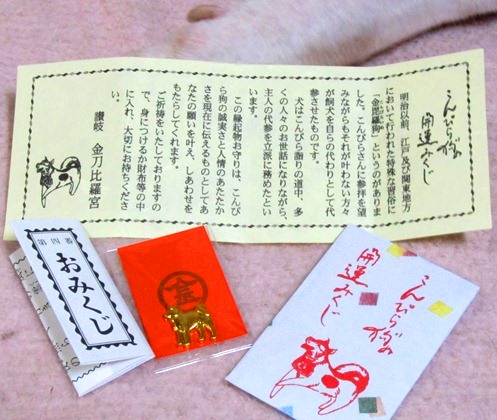 こんぴら狗の
開運みくじ
明治以前、江戸及び関東地方
において行われた特殊な習俗に
「金毘羅狗」というのがありま
した。こんぴらさんに参拝を望
みながらもそれが叶わない方々
が飼犬を自らの代わりとして代
参させたものです。
犬はこんぴら詣りの道中、多
くの人々のお世話になりながら、
主人の代参を立派に務めたとい
います。
この縁起物お守りは、こんぴ
ら狗の誠実さと人情のあたたか
さを現在に伝えるものとしてあ
なたの願いを叶え、しあわせを
もたらしてくれます。
ご祈祷をいたしておりますの
で、身につけるか財布等の中
に入れ、大切にお持ちくださ
い。
讃岐 金刀比羅宮
第四番
おみくじ
金
こんぴら狗の
開運みくじ